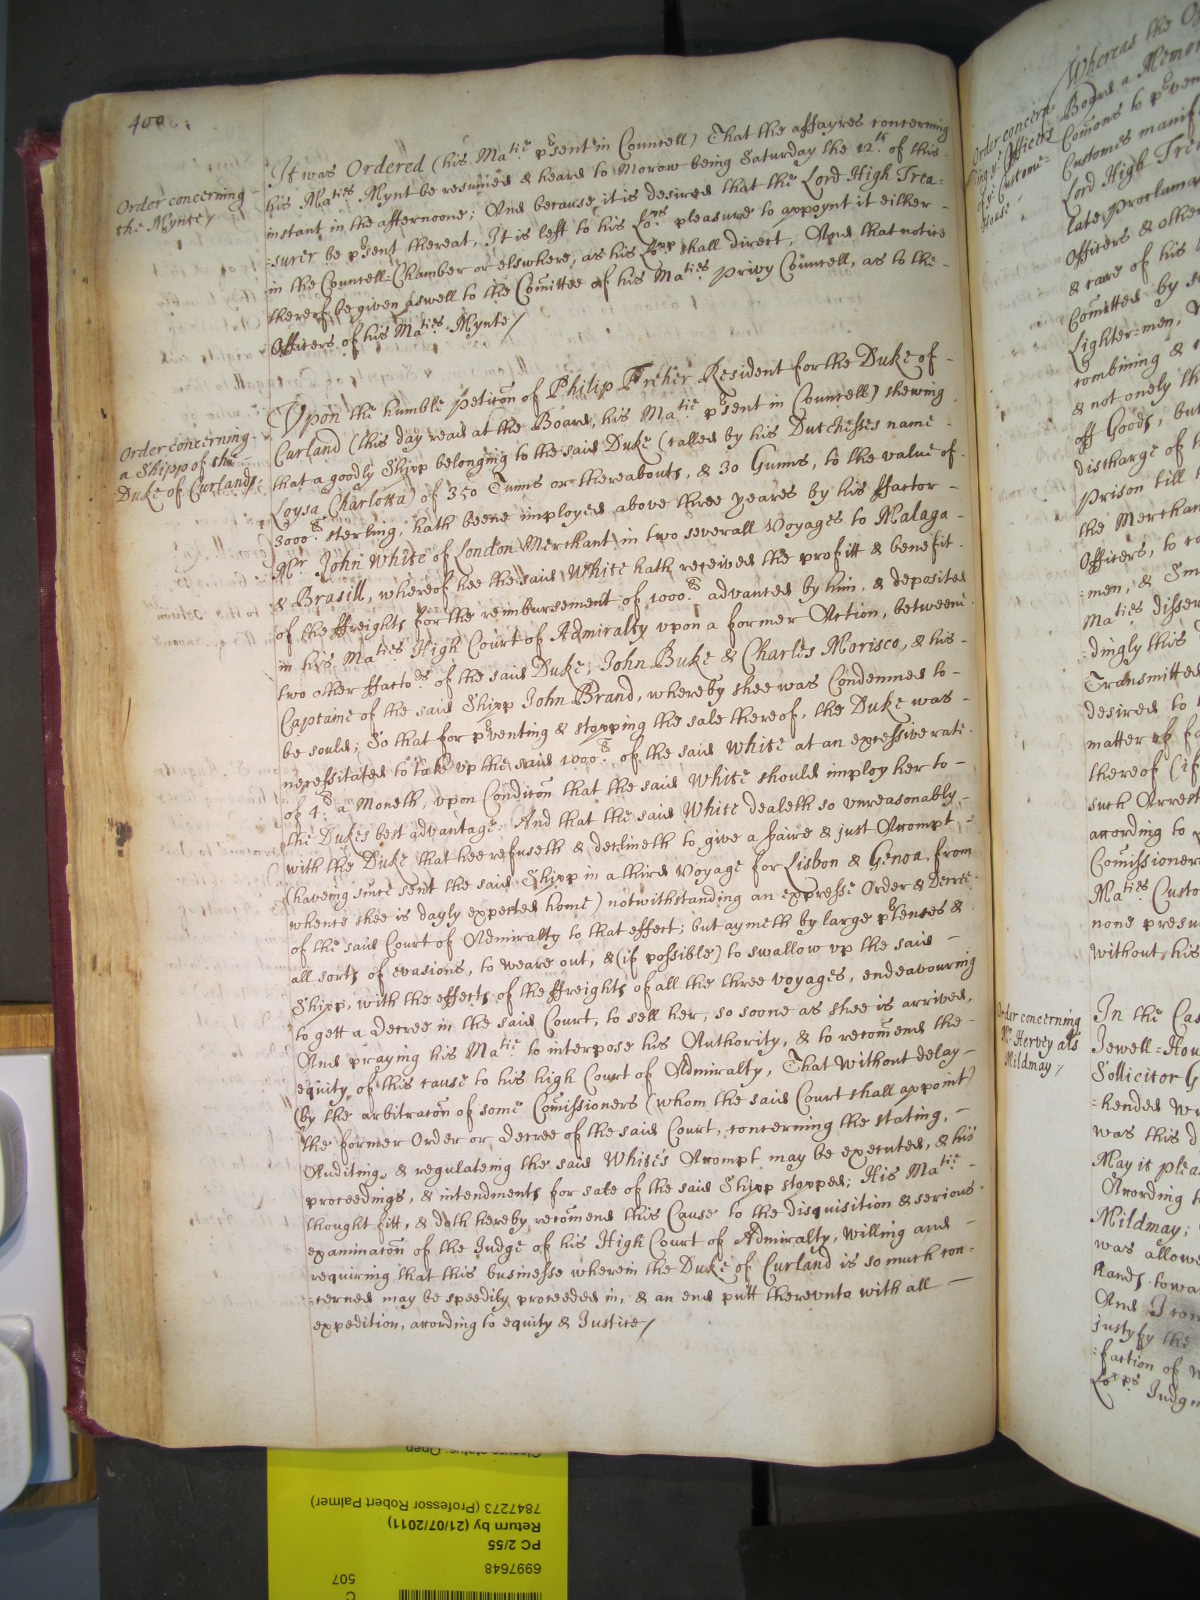 400
Order concerning
the Mynte/
It was Ordered (his Ma:tie p:rsent in Councell) That the affayres concerning
his Ma:ties Mynt be resumed & heard to Morow being Saturday the 12:th of this
instant in the afternoone; And because it is desired that the Lord High Trea:
:surer be p:rsent thereat, It is left to his Lo:ps pleasure to appoynt it either
in the Councell-Chamber or elswhere, as his Lo:pp shall direct, And that notice
thereof be given aswell to the Comittee of his Ma:ties privy Councell, as to the
Officers of his Ma:ties Mynte/
Order concerning
a Shipp of the
Duke of Curlands
Vpon the humble petiton of Philip Freher Resident for the Duke of
Curland (this day read at the Board, his Ma:tie p:rsent in Councell) shewing
that a goodly Shipp belonging to the said Duke (called by his Dutchesses name
Loysa Charlotta) of 350 Tunns or thereabouts, & 30 Gunns, to the value of
3000:l sterling, hath beene imployed above three yeares by his ffactor
M:r John White of London Merchant in two severall Voyages to Malaga
& Brasill, whereof hee the said White hath received the profitt & benefit
of the ffreights for the reimbursement of 1000:l advanced by him, & deposited
in his Ma:ties High Court of Admiralty vpon a former Action, betweene
two other ffacto:rs of the said Duke, John Buke & Charles Morisco, & his
Captaine of the said Shipp John Brand, whereby shee was Condemned to
be sould; So that for p:rventing & stopping the sale thereof, the Duke was
necessitated to take vp the said 1000:l of the said White at an excessive rate
of 4:l a Moneth, vpon Conditon that the said White should imploy her to
the Dukes best advantage; And that the said White dealeth so vnreasonably
with the Duke that hee refuseth & declineth to give a faire & just Accompt
(haveing since sent the said Shipp in a third Voyage for Lisbon & Genoa, from
whence shee is dayly expected home) notwithstanding an expresse Order & Decree
of the said Court of Admiralty to that effect; but aymeth by large p:rtences &
all sorts of evasions, to weare out, & (if possible) to swallow vp the said
Shipp, with the effects of the ffreights of all the three voyages, endeavouring
to gett a Decree in the said Court, to sell her, so soone as shee is arrived,
And praying his Ma:tie to interpose his Authority, & to recomend the
equity of this cause to his high Court of Admiralty, That without delay
(by the arbitraton of some Comissioners (whom the said Court shall appoint)
the former Order or Decree of the said Court, concerning the stating,
Auditing, & regulateing the said White's Accompt may be executed, & his
proceedings, & intendments for sale of the said Shipp stopped; His Ma:tie
thought fitt, & doth hereby recomend this Cause to the disquisition & serious
examinaton of the Judge of his High Court of Admiralty, willing and
requiring that this businesse wherein the Duke of Curland is so much con:
:cerned may be speedily proceeded in, & an end putt therevnto with all
expedition, according to equity & Justice/
Order concern:
Whereas the
Board a Memor
Comons to p:rven
Customes manif
Lord High Tre
late proclama
Officers & other
& care of his
Comitted by s
Lighter=men,
combining &
& not onely th
off Goods, but
discharge of t
prison till
the Merchan
Officers, to
:men, &
Ma:ties disser
:dingly this
Transmitted
desired to
matter of fa
thereof (if
such Arrest
according to
Comissioner
Ma:ties Custo
none presu
without his
Order concerning
M:r Hervey als
Mildmay/
In the Cas
Jewell=Hou
Sollicitor G
:hended
was this d
May it plea
According
Mildmay;
was allowe
hands towa
And I con
justyfy the
:faction of
Lo:pps Judgm
Closure status: Open
7847273 (Professor Robert Palmer)
Return by (21/07/2011)
PC 2/55
6997648
507
C